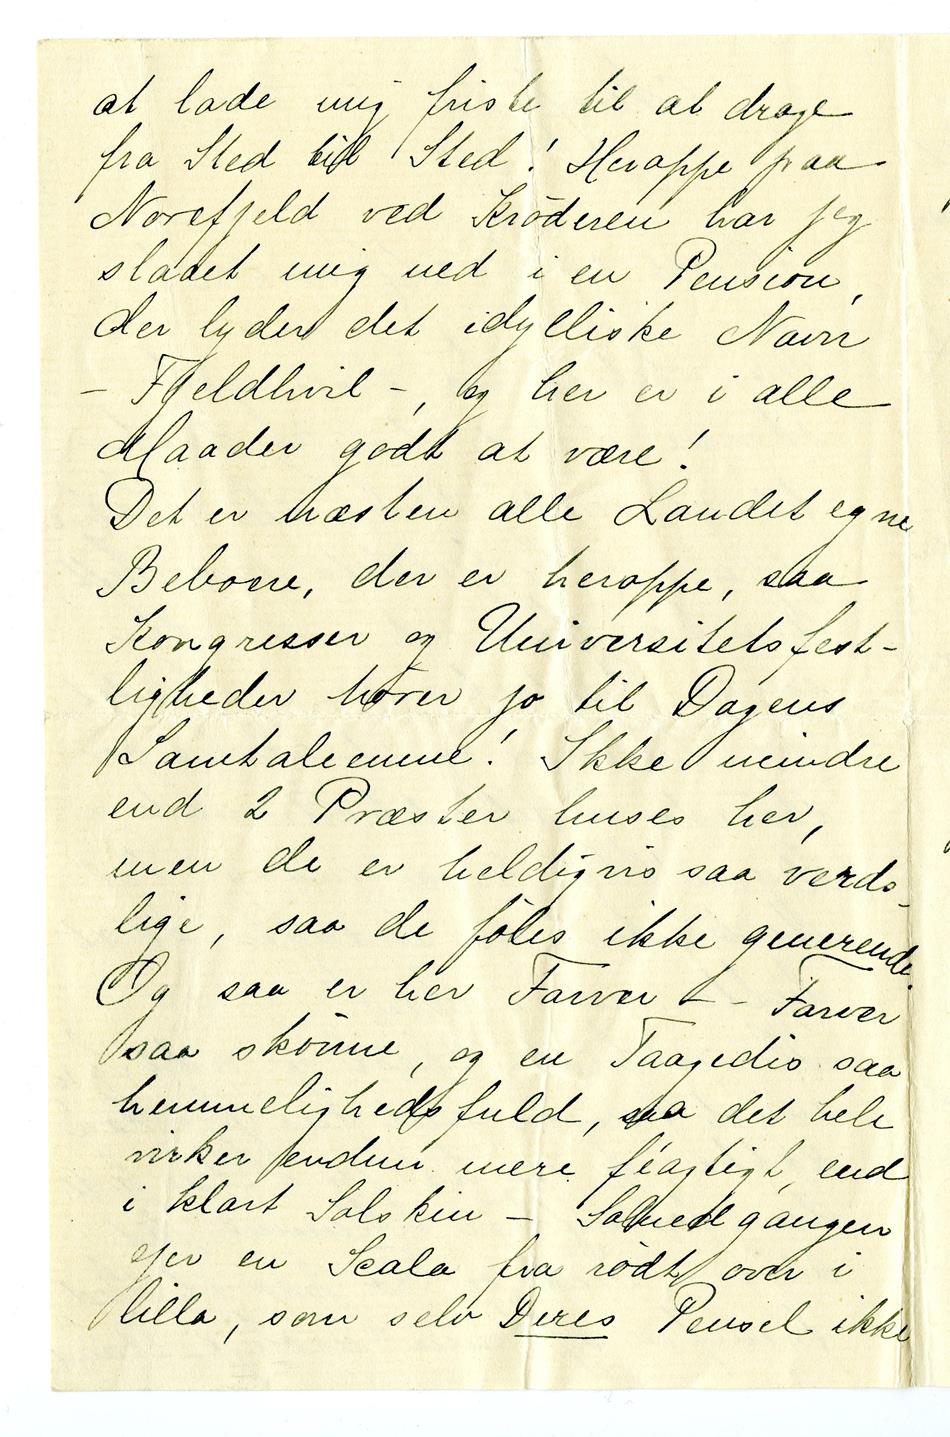 at lade mig friste til at drage
fra Sted til Sted! Heroppe paa
Norefjeld ved Krøderen har jeg
slaaet mig ned i en Pension,
der lyder det idylliske Navn
- Fjeldhvil -, og her er i alle
Maader godt at være!
Det er næsten alle Landet egne
Beboere, der er heroppe, saa
Kongresser og Universitetsfest-
ligheder hører jo til Dagens
Samtaleemne! Ikke mindre
end 2 Præster huses her,
men de er heldigvis saa verds-
lige, saa de føles ikke generende.
Og saa er her Farver - - Farver
saa skønne, og en Taagedis saa
hemmelighedsfuld, saa det hele
virker endnu mere féagtigt, end
i klart Solskin - Solnedgangen
ejer en Scala fra rødt over i
lilla, som selv Deres Pensel ikke